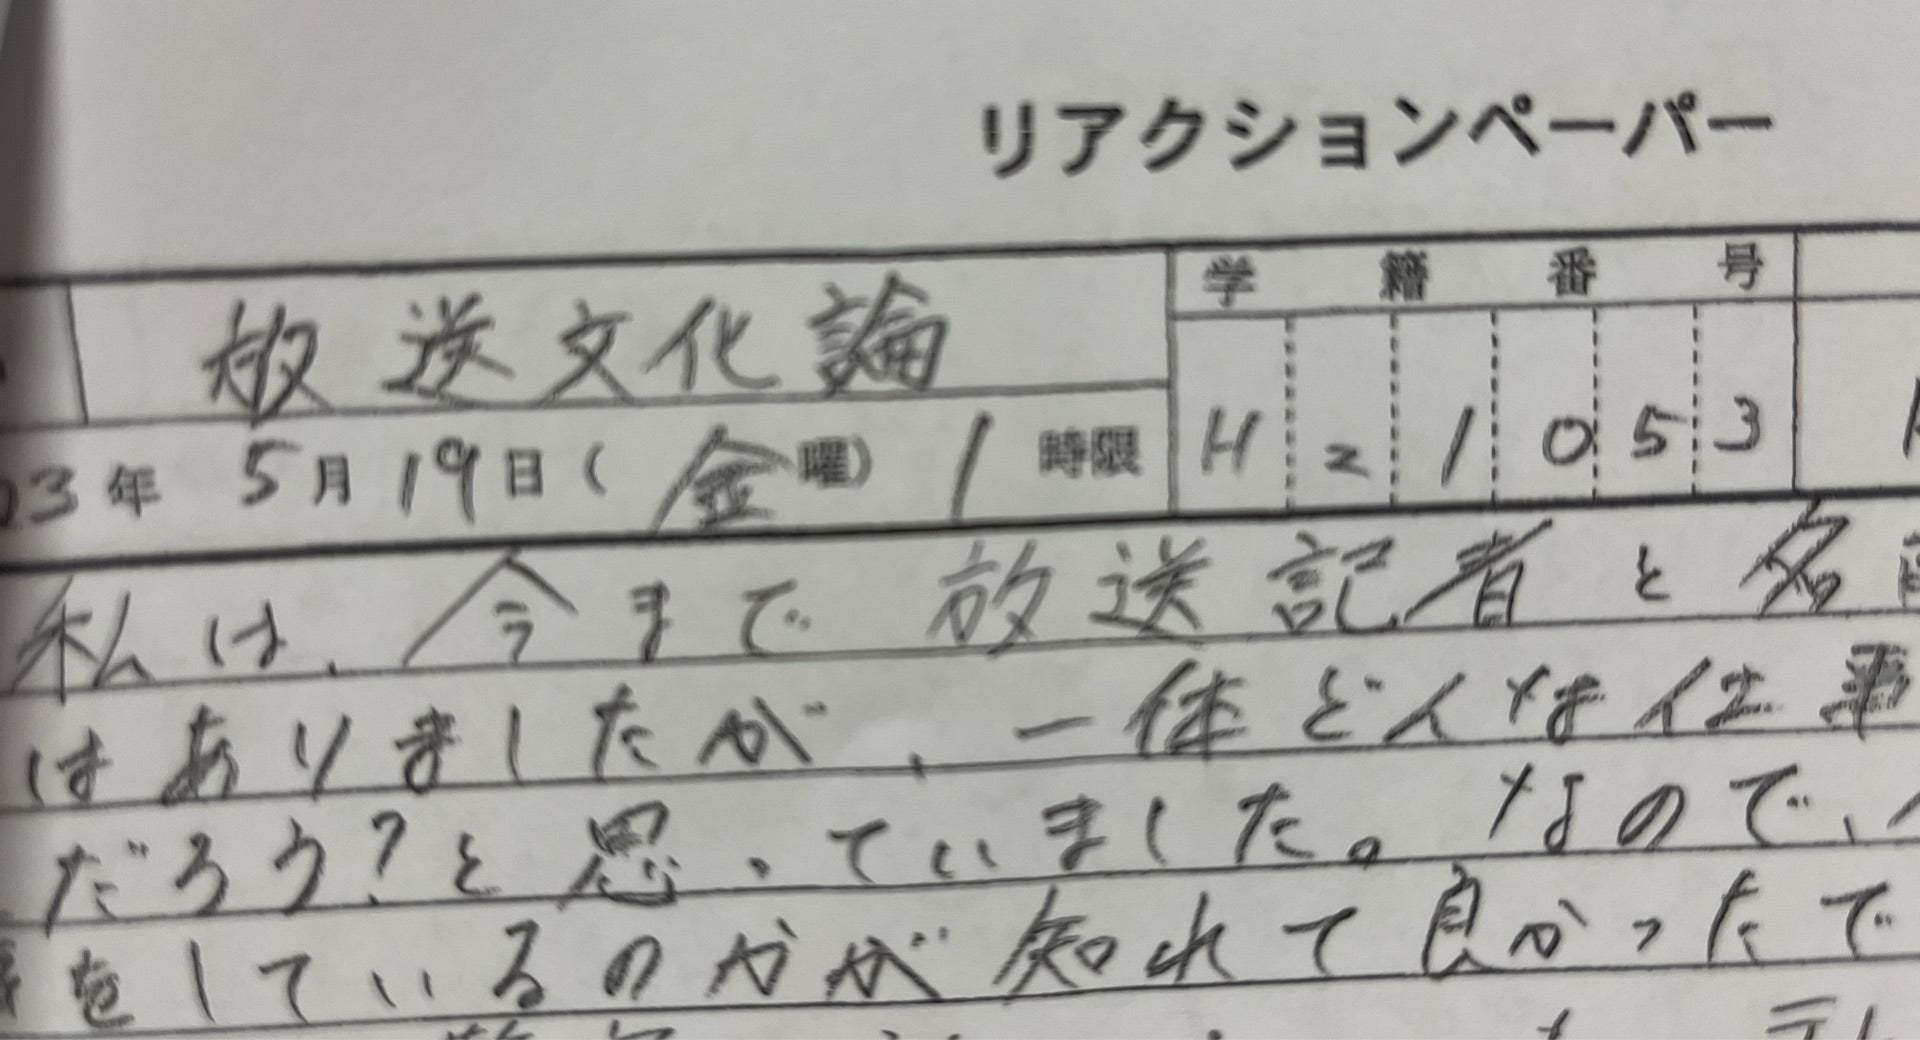 リアクションペーパー
放送文化論
学籍番号
03年 5月19日(金曜) 1 時限
H21053
私は、今まで放送記者と名
はありましたが、一体どんな仕事
だろう?と思っていました。なので、
をしているのかが知れて良かったで